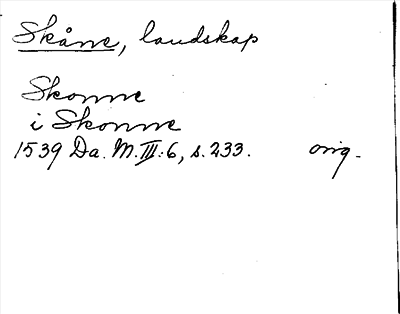 Skåne, landskap
Skonne
i Skonne
1539 Da. M. III:6, s. 233. orig.